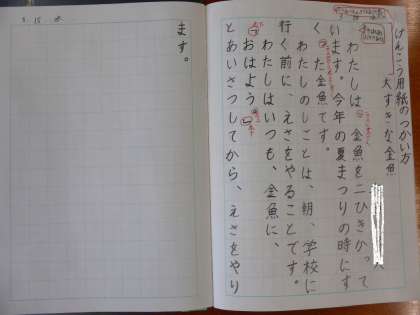 げんこう用紙のつかい方
大すきな金魚
わたしは、金魚を二ひきかって
います。今年の夏まつりの時にす
くった金魚です。
わたしのしごとは、朝、学校に
行く前に、えさをやることです。
わたしはいつも、金魚に、
「おはよう。」
とあいさつしてから、えさをやり
ます。